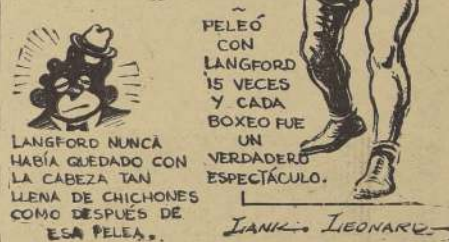 LANGFORD NUNCA
HABÍA QUEDADO CON
LA CABEZA TAN
LLENA DE CHICHONES
COMO DESPUÉS DE
ESA PELEA.
PELEÓ
CON
LANGFORD
15 VECES
Y CADA
BOXEO FUE
UN
VERDADERO
ESPECTÁCULO.
LANK. LEONARD